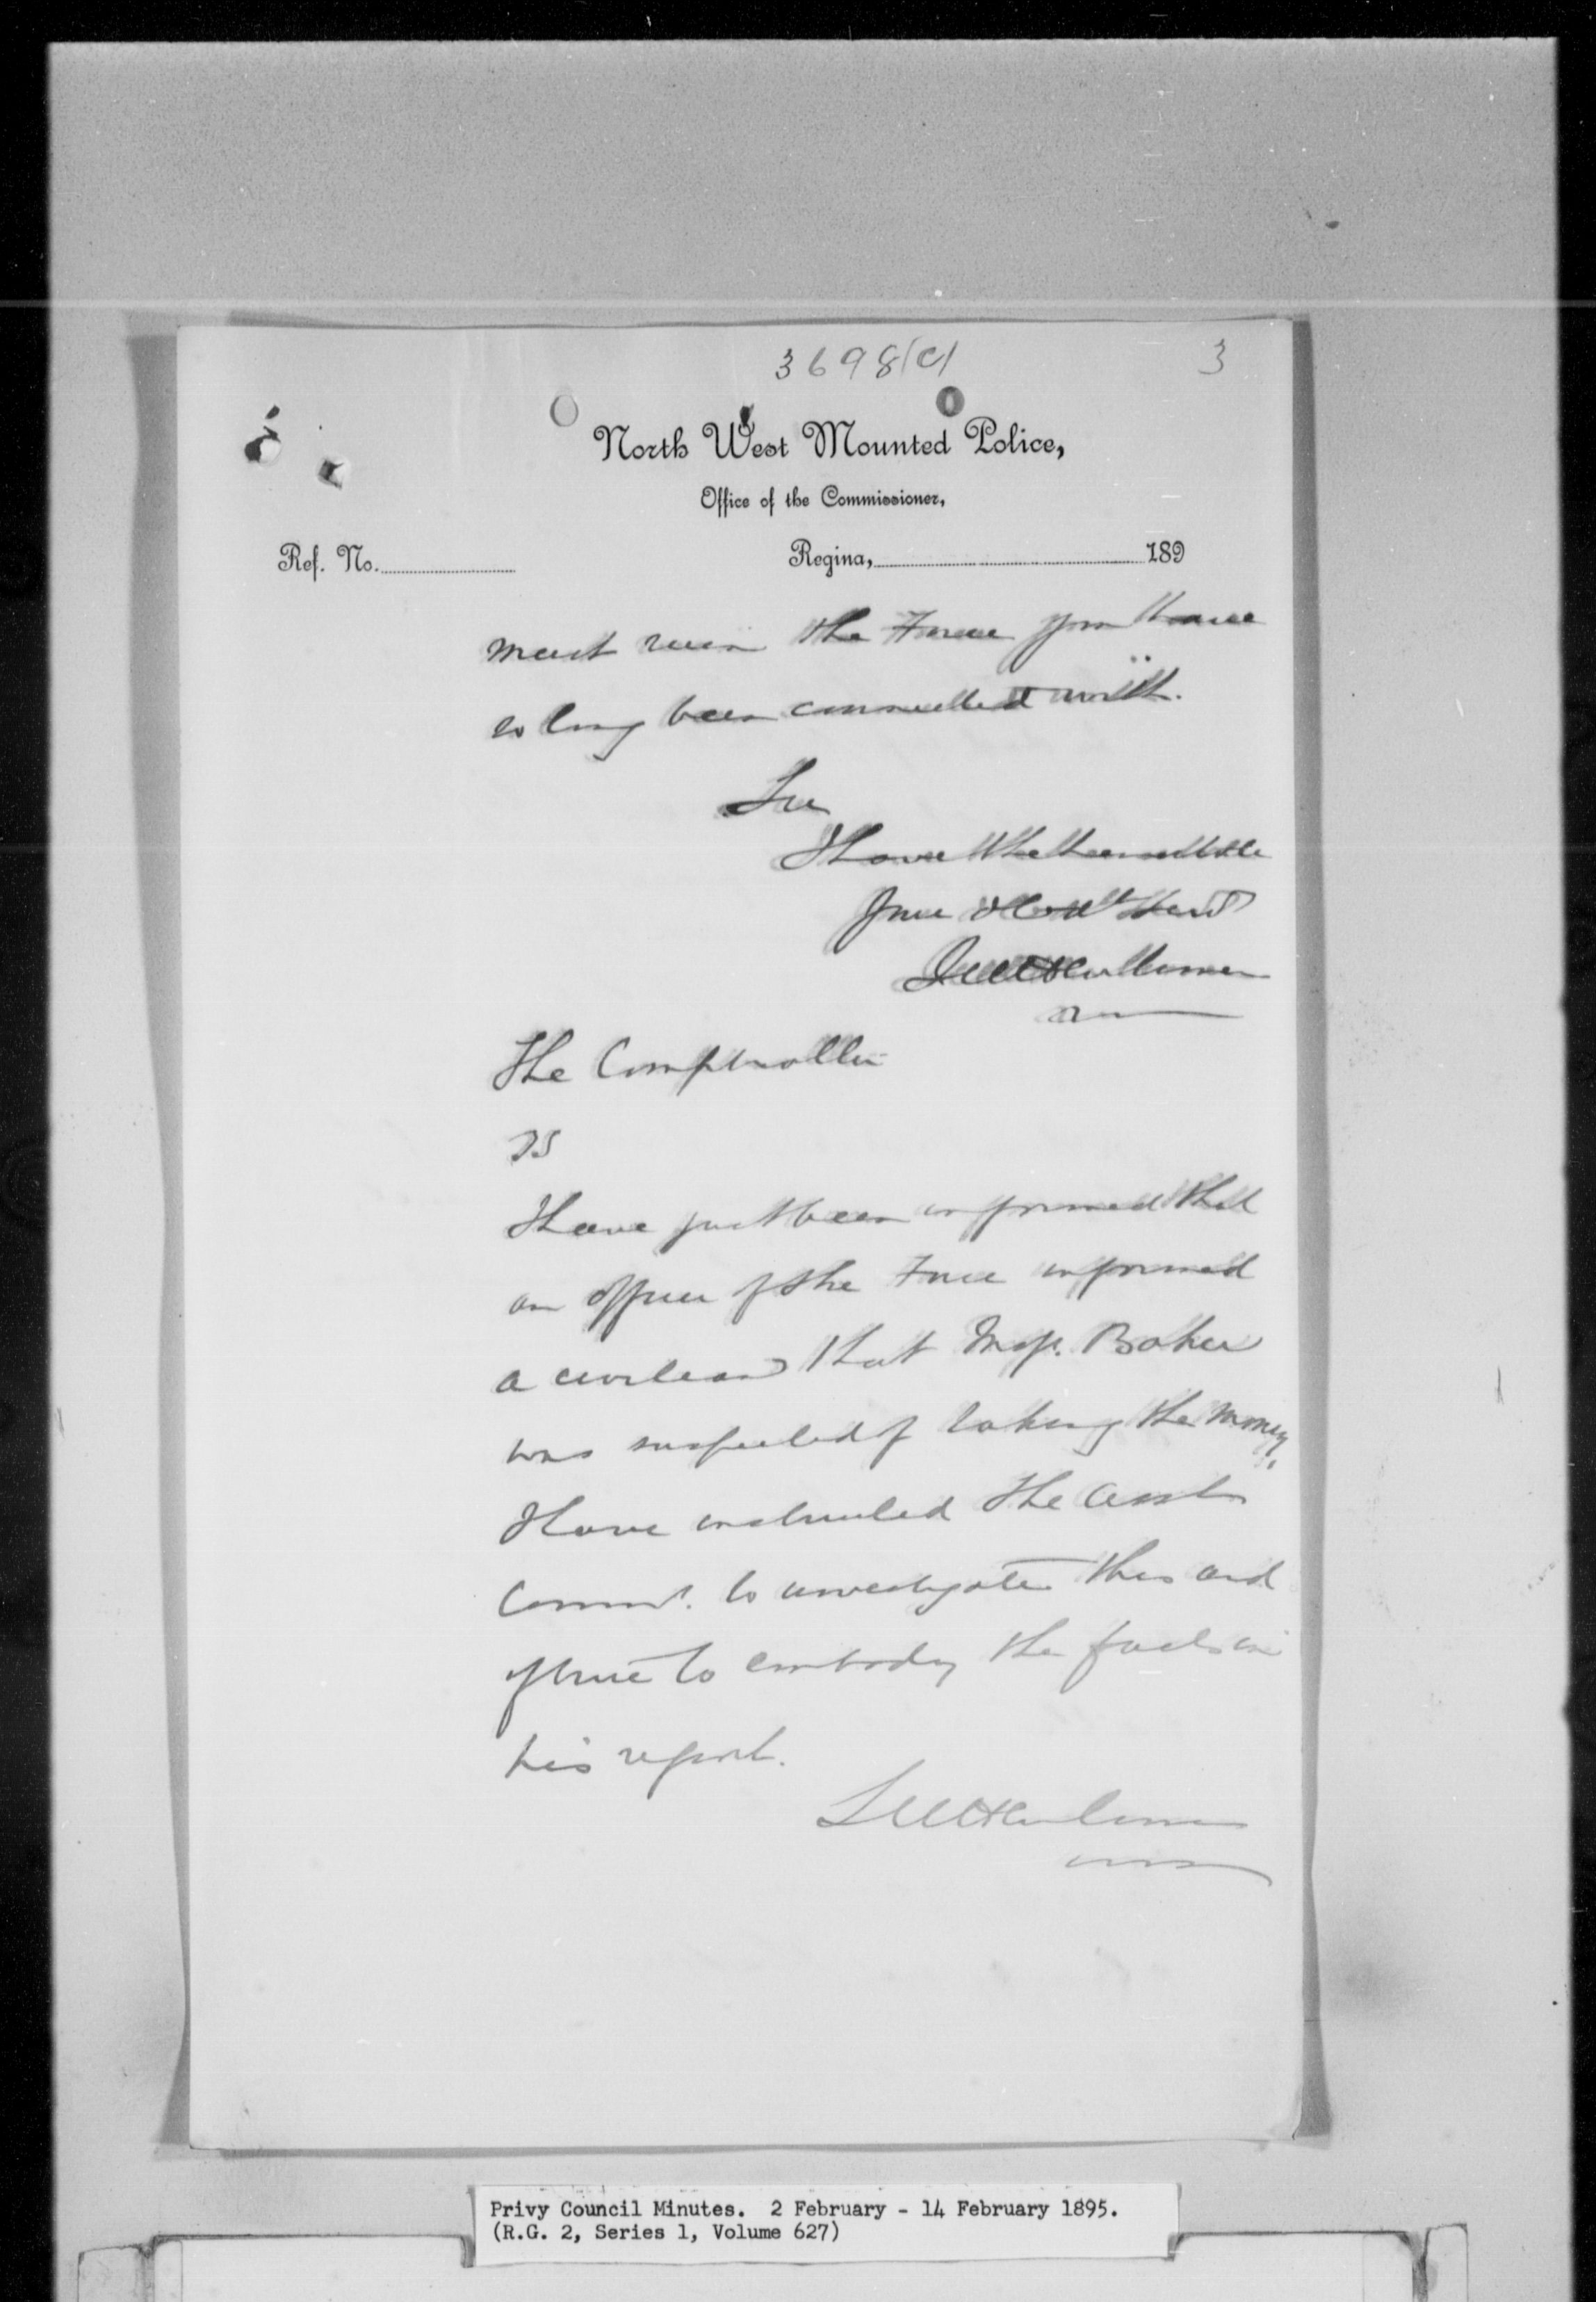 3698(c) 3
North West Mounted Police,
Office of the Commissioner,
Ref. No. Regina, 189
must ruin the Force you have
so long been connected with.
Sir
I have the honor to be
Your Obedt Servt
The Comptroller
PS
I have just been informed that
an officer of the Force informed
a civilian that Insp. Baker
was suspected of taking the money,
I have instructed the Asst
Commr. to investigate this and
if true to embody the facts in
his report.
Privy Council Minutes. 2 February - 14 February 1895.
(R.G. 2, Series 1, Volume 627)